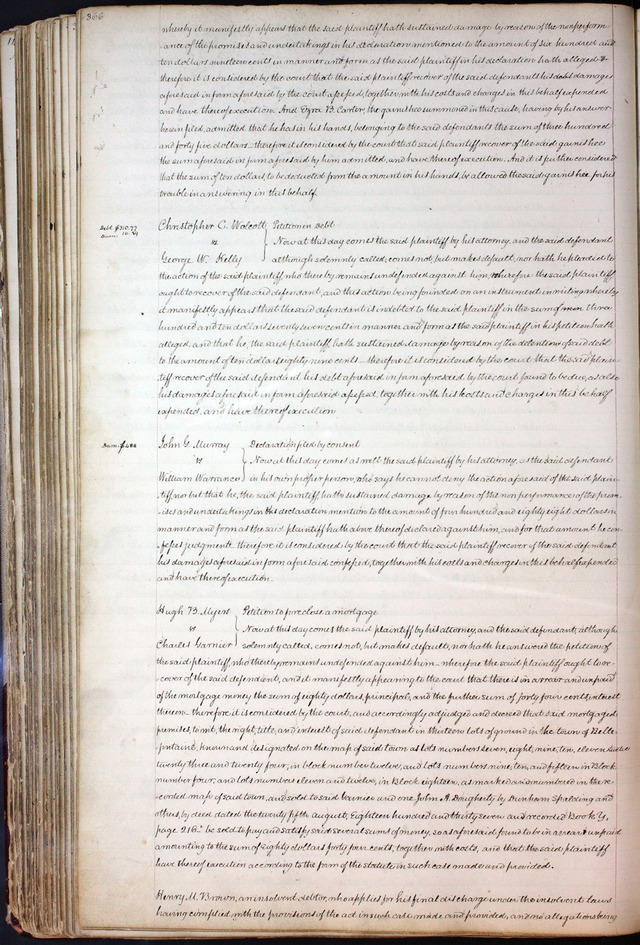 366
whereby it manifestly appears that the said plaintiff hath sustained damage by reason of the nonperform
ance of the promises and undertakings in his declaration mentioned to the amount of six hundred and
ten dollars nineteen cents in manner and form as the said plaintiff in his declaration hath alleged &
therefore it is considered by the court that the said plaintiff recover of the said defendants his damages
aforesaid in form aforesaid by the court assessed, together with his costs and charges in this behalf expended
and have thereof execution. And Ezra B. Carter, the garnishee summoned in this cause, having by his answer
herein filed, admitted that he has in his hands, belonging to the said defendants the sum of three hundred
and forty five dollars. therefore it is considered by the court that said plaintiff recover of the said garnishee
the sum aforesaid in form aforesaid by him admitted, and have thereof execution. And it is further considered
that the sum of ten dollars, to be deducted from the amount in his hands, be allowed the said garnishee for his
trouble in answering in this behalf.
Debt $310.77
Dam. 10.89
Christopher C. Wolcott } Petition in debt
vs Now at this day comes the said plaintiff by his attorney, and the said defendant
George W. Kelly although solemnly called, comes not, but makes default, nor hath he pleaded to
the action of the said plaintiff who thereby remains undefended against him, wherefore the said plaintiff
ought to recover of the said defendant, and this action being founded on an instrument in writing whereby
it manifestly appears that the said defendant is indebted to the said plaintiff in the sum of three
hundred and ten dollars seventy seven cents in manner and form as the said plaintiff in his petition hath
alleged, and that he, the said plaintiff, hath sustained damage by reason of the detention of said debt
to the amount of ten dollars eighty nine cents. therefore it is considered by the court that the said plain
tiff recover of the said defendant his debt aforesaid in form aforesaid, by the court found to be due, as also
his damages aforesaid in form aforesaid assessed, together with his costs and charges in this behalf
expended, and have thereof execution
Dam. $488
John G. Murray } Declaration filed by consent
vs Now at this day comes as well the said plaintiff by his attorney, as the said defendant
William Warrance in his own proper person, who says he cannot deny the action aforesaid of the said plain
tiff, nor but that he, the said plaintiff, hath sustained damage by reason of the non performance of the prom
ises and undertakings in the declaration mention to the amount of four hundred and eighty eight dollars in
manner and form as the said plaintiff hath above thereof declared against him, and for that amount he con
fesses judgment. therefore it is considered by the court that the said plaintiff recover of the said defendant
his damages aforesaid in form aforesaid confessed, together with his costs and charges in this behalf expended
and have thereof execution.
Hugh B. Myers } Petition to foreclose a mortgage
vs Now at this day comes the said plaintiff by his attorney, and the said defendant, although
Charles Garnier solemnly called, comes not, but makes default, nor hath he answered the petition of
the said plaintiff, who thereby remains undefended against him. wherefore the said plaintiff ought to re
cover of the said defendant, and it manifestly appearing to the court that there is in arrear and unpaid
of the mortgage money the sum of eighty dollars, principal, and the further sum of forty four cents, interest
thereon. therefore it is considered by the court, and accordingly adjudged and decreed that said mortgaged
premises, to wit, the right, title, and interest of said defendant in thirteen lots of ground in the town of Belle
fontaine, known and designated on the map of said town as lots numbers seven, eight, nine, ten, eleven,
twenty three and twenty four, in block number twelve, and lots numbers nine, ten, and fifteen in Block
number four, and lots numbers eleven and twelve, in Block eighteen, as marked and numbered in the re
corded map of said town, and sold to said Garnier and one John A. Dougherty by Dunham Spalding and
others, by deed dated the twenty fifth august, Eighteen hundred and thirty seven and recorded Book Y,
page 216." be sold to pay and satisfy said several sums of money, so as aforesaid found to be in arrear & unpaid
amounting to the sum of eighty dollars forty four cents, together with costs, and that the said plaintiff
have thereof execution according to the form of the statute in such case made and provided.
Henry M. Brown, an insolvent debtor, who applies for his final discharge under the insolvent laws
having complied, with the provisions of the act in such case made and provided, and no allegations being